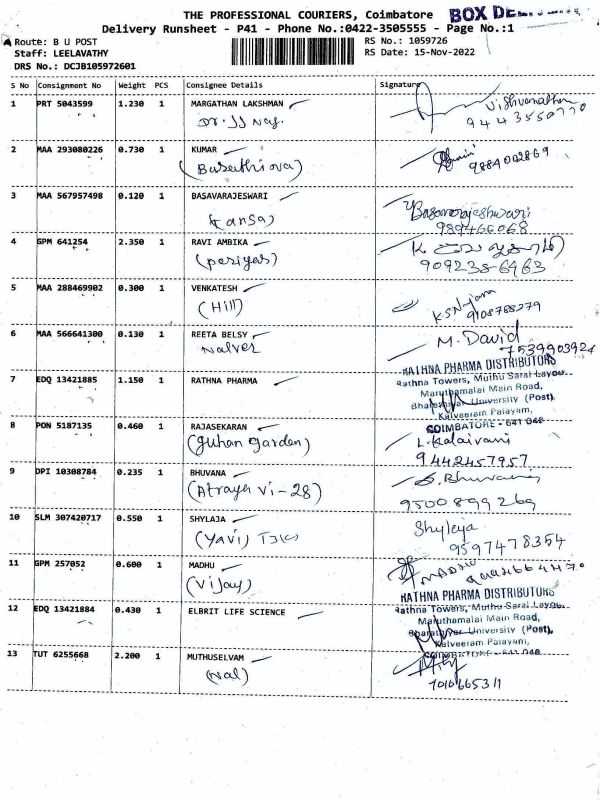 THE PROFESSIONAL COURIERS, Coimbatore
BOX
Delivery Runsheet - P41 - Phone No.:0422-3505555 - Page No.:1
Route: B U POST
RS No.: 1059726
Staff: LEELAVATHY
RS Date: 15-Nov-2022
DRS No.: DCJB105972601
S No Consignment No Weight PCS Consignee Details Signature
1 PRT 5043599 1.230 1 MARGATHAN LAKSHMAN
Vishvanathan
2 MAA 293080226 0.730 1 KUMAR
9884002869
3 MAA 567957498 0.120 1 BASAVARAJESWARI
Basavarajeshwari
(kansa)
989466068
4 GPM 641254 2.350 1 RAVI AMBIKA
(periyar)
5 MAA 288469902 0.300 1 VENKATESH
(Hill)
6 MAA 566641300 0.130 1 REETA BELSY
M. David
Nalver
7539903924
RATHNA PHARMA DISTRIBUTORS
7 EDQ 13421885 1.150 1 RATHNA PHARMA
Rathna Towers, Muthu Sarai Layou
Maruthamalai Main Road,
Bharathiyar University (Post)
Kalveeram Palayam,
COIMBATORE - 641 046
8 PON 5187135 0.460 1 RAJASEKARAN
(guhan garden)
L. Kalaivani
9442457957
9 DPI 10308784 0.235 1 BHUVANA
(Atraya Vi-28)
9500899269
10 SLM 307420717 0.550 1 SHYLAJA
Shyleya
9597478354
11 GPM 257052 0.600 1 MADHU
(Vijay)
RATHNA PHARMA DISTRIBUTORS
12 EDQ 13421884 0.430 1 ELBRIT LIFE SCIENCE
Rathna Towers, Muthu Sarai Layou
Maruthamalai Main Road,
Bharathiyar University (Post),
Kalveeram Palayam,
COIMBATORE - 641 046
13 TUT 6255668 2.200 1 MUTHUSELVAM
(Nal)
7010665311